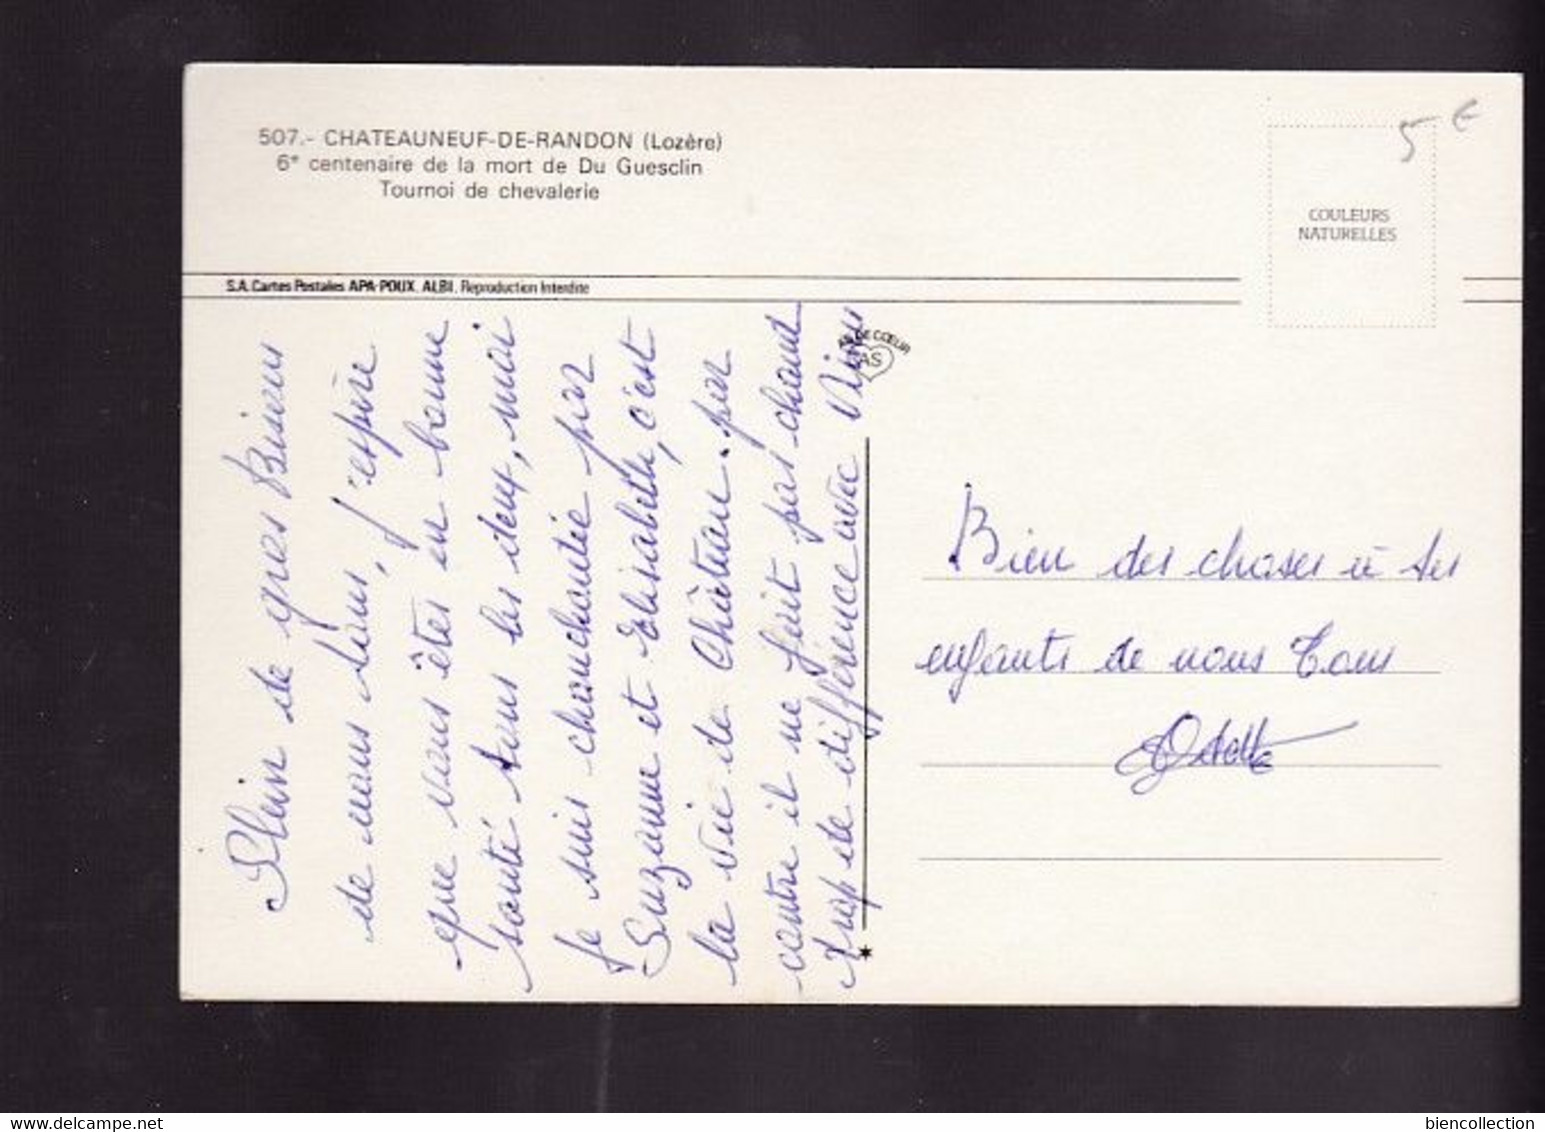 507.- CHATEAUNEUF-DE-RANDON (Lozère)
6e centenaire de la mort de Du Guesclin
Tournoi de chevalerie
5 €
COULEURS
NATURELLES
S.A. Cartes Postales APA-POUX. ALBI. Reproduction Interdite
AS DE CŒUR
AS
Plein de gros Bisous
de nous tous, j'espère
que vous êtes en bonne
santé tous les deux, moi
je suis chouchoutée par
Suzanne et Elisabeth, c'est
la vie de Château. par
contre il ne fait pas chaud
trop de différence avec
Bien des choses à tes
enfants de nous Tous
Odette
biencollection